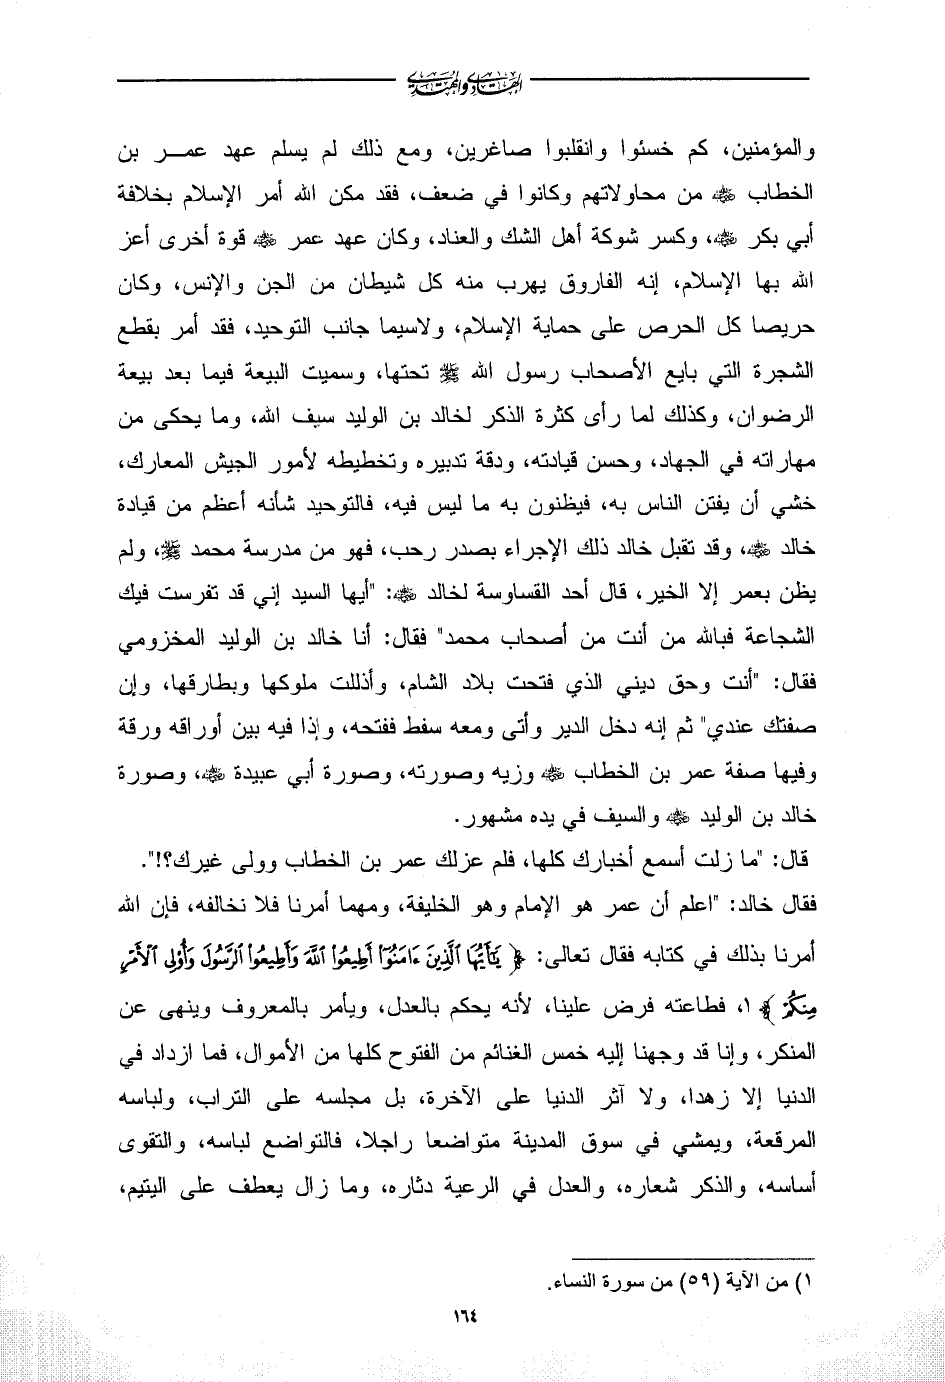 الهادي والمهتدي
والمؤمنين، كم خسئوا وانقلبوا صاغرين، ومع ذلك لم يسلم عهد عمـر بن
الخطاب ﷺ من محاولاتهم وكانوا في ضعف، فقد مكن الله أمر الإسلام بخلافة
أبي بكر ﷺ، وكسر شوكة أهل الشك والعناد، وكان عهد عمر ﷺ قوة أخرى أعز
الله بها الإسلام، إنه الفاروق يهرب منه كل شيطان من الجن والإنس، وكان
حريصا كل الحرص على حماية الإسلام، ولاسيما جانب التوحيد، فقد أمر بقطع
الشجرة التي بايع الأصحاب رسول الله ﷺ تحتها، وسميت البيعة فيما بعد بيعة
الرضوان، وكذلك لما رأى كثرة الذكر لخالد بن الوليد سيف الله، وما يحكى من
مهاراته في الجهاد، وحسن قيادته، ودقة تدبيره وتخطيطه لأمور الجيش المعارك،
خشي أن يفتن الناس به، فيظنون به ما ليس فيه، فالتوحيد شأنه أعظم من قيادة
خالد ﷺ، وقد تقبل خالد ذلك الإجراء بصدر رحب، فهو من مدرسة محمد ﷺ، ولم
يظن بعمر إلا الخير، قال أحد القساوسة لخالد ﷺ: "أيها السيد إني قد تفرست فيك
الشجاعة فبالله من أنت من أصحاب محمد" فقال: أنا خالد بن الوليد المخزومي
فقال: "أنت وحق ديني الذي فتحت بلاد الشام، وأذللت ملوكها وبطارقها، وإن
صفتك عندي" ثم إنه دخل الدير وأتى ومعه سفط ففتحه، وإذا فيه بين أوراقه ورقة
وفيها صفة عمر بن الخطاب ﷺ وزيه وصورته، وصورة أبي عبيدة ﷺ، وصورة
خالد بن الوليد ﷺ والسيف في يده مشهور.
قال: "ما زلت أسمع أخبارك كلها، فلم عزلك عمر بن الخطاب وولى غيرك؟!".
فقال خالد: "اعلم أن عمر هو الإمام وهو الخليفة، ومهما أمرنا فلا نخالفه، فإن الله
أمرنا بذلك في كتابه فقال تعالى: ﴿ يَٰٓأَيُّهَا ٱلَّذِينَ ءَامَنُوٓا۟ أَطِيعُوا۟ ٱللَّهَ وَأَطِيعُوا۟ ٱلرَّسُولَ وَأُو۟لِى ٱلْأَمْرِ
مِنكُمْ ﴾ ١، فطاعته فرض علينا، لأنه يحكم بالعدل، ويأمر بالمعروف وينهى عن
المنكر، وإنا قد وجهنا إليه خمس الغنائم من الفتوح كلها من الأموال، فما ازداد في
الدنيا إلا زهدا، ولا آثر الدنيا على الآخرة، بل مجلسه على التراب، ولباسه
المرقعة، ويمشي في سوق المدينة متواضعا راجلا، فالتواضع لباسه، والتقوى
أساسه، والذكر شعاره، والعدل في الرعية دثاره، وما زال يعطف على اليتيم،
١) من الآية (٥٩) من سورة النساء.
١٦٤